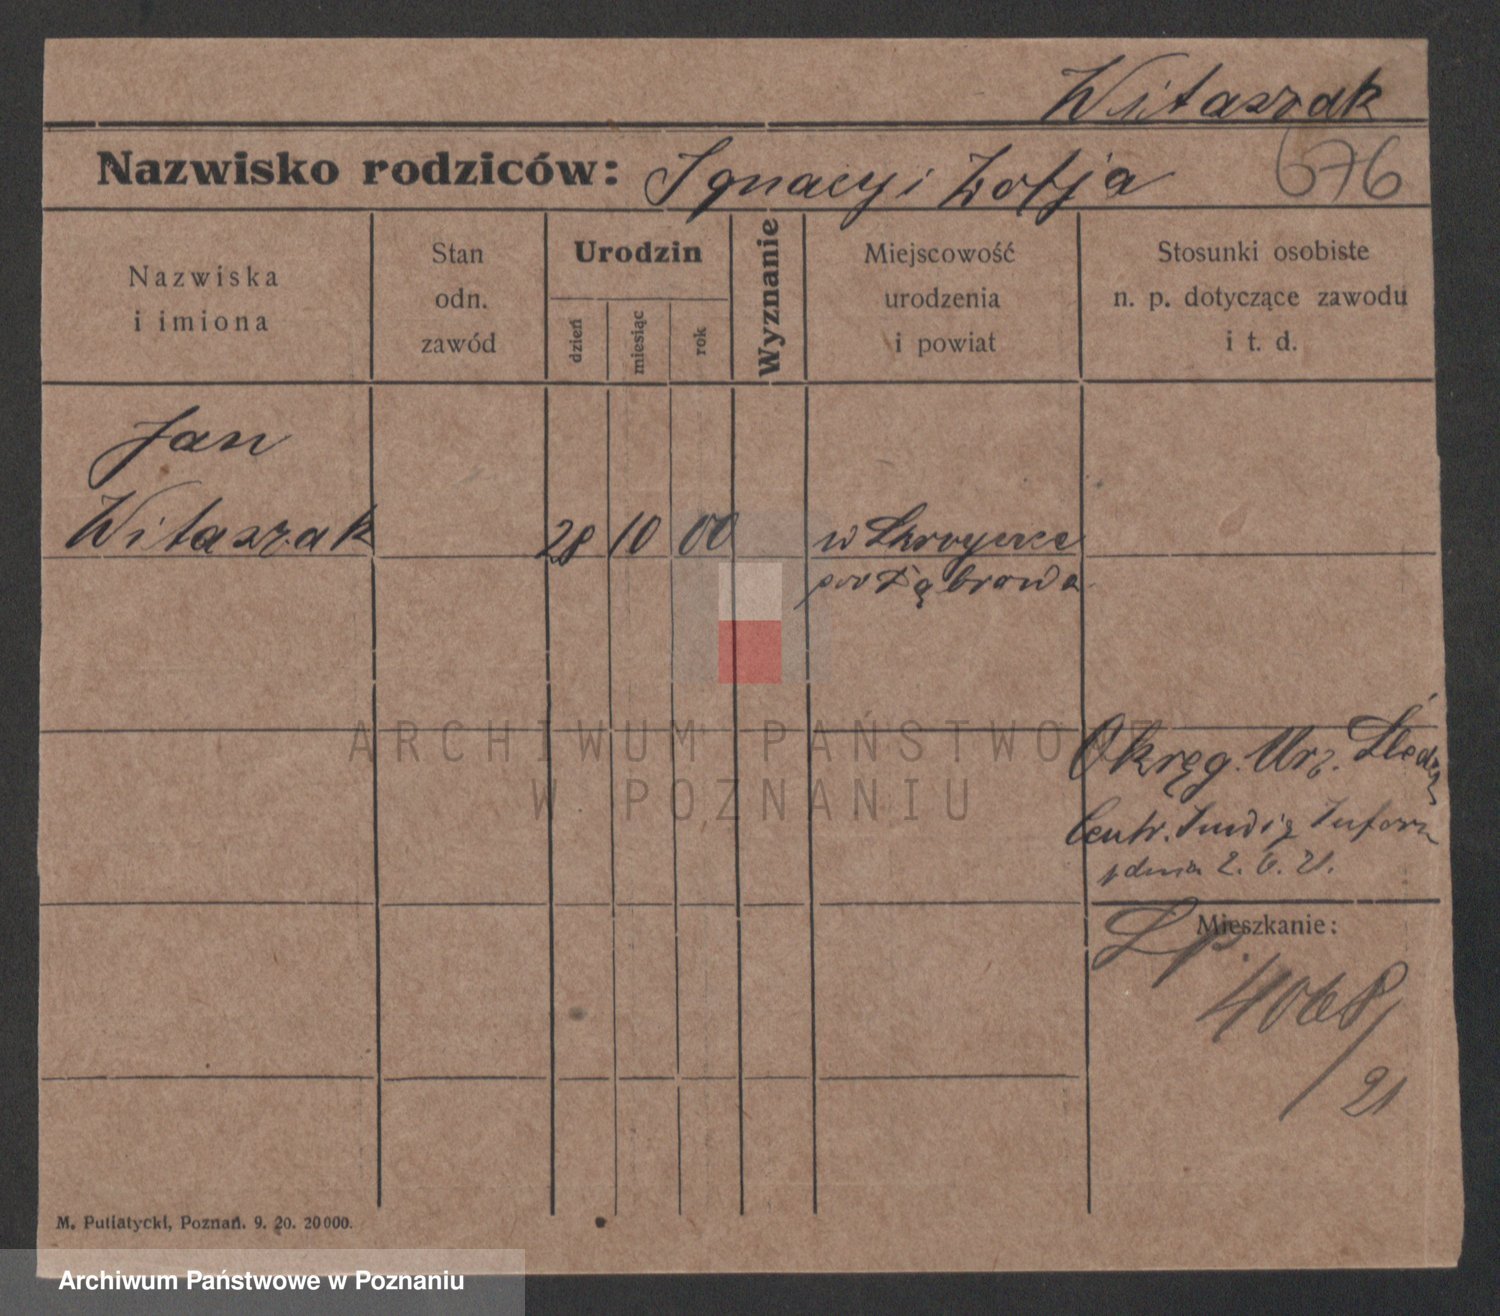 Witaszak
Nazwisko rodziców: Ignacy i Zofja 676
Nazwiska
i imiona
Stan
odn.
zawód
Urodzin
dzień
miesiąc
rok
Wyznanie
Miejscowość
urodzenia
i powiat
Stosunki osobiste
n. p. dotyczące zawodu
i t. d.
Jan
Witaszak 28 10 00 w
pow Dąbrowa
ARCHIWUM PAŃSTWOWE
W POZNANIU
Okręg. Urz. Śledz
Centr.
dnia 2. 6. 21.
Mieszkanie:
Lp.
4068/
21
M. Putiatycki, Poznań. 9. 20. 20000.
Archiwum Państwowe w Poznaniu